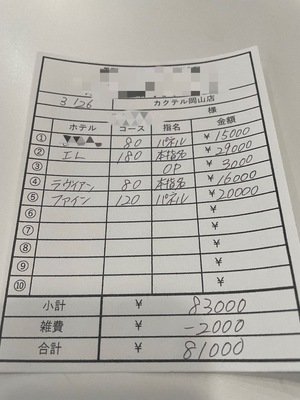 3/26 カクテル岡山店
様
ホテル コース 指名 金額
① 80 パネル ¥15000
② エレ 180 本指名 ¥29000
③ OP ¥3000
④ ラヴィアン 80 本指名 ¥16000
⑤ ファイン 120 パネル ¥20000
⑥ ¥
⑦ ¥
⑧ ¥
⑨ ¥
⑩ ¥
小計 ¥ 83000
雑費 ¥ -2000
合計 ¥ 81000